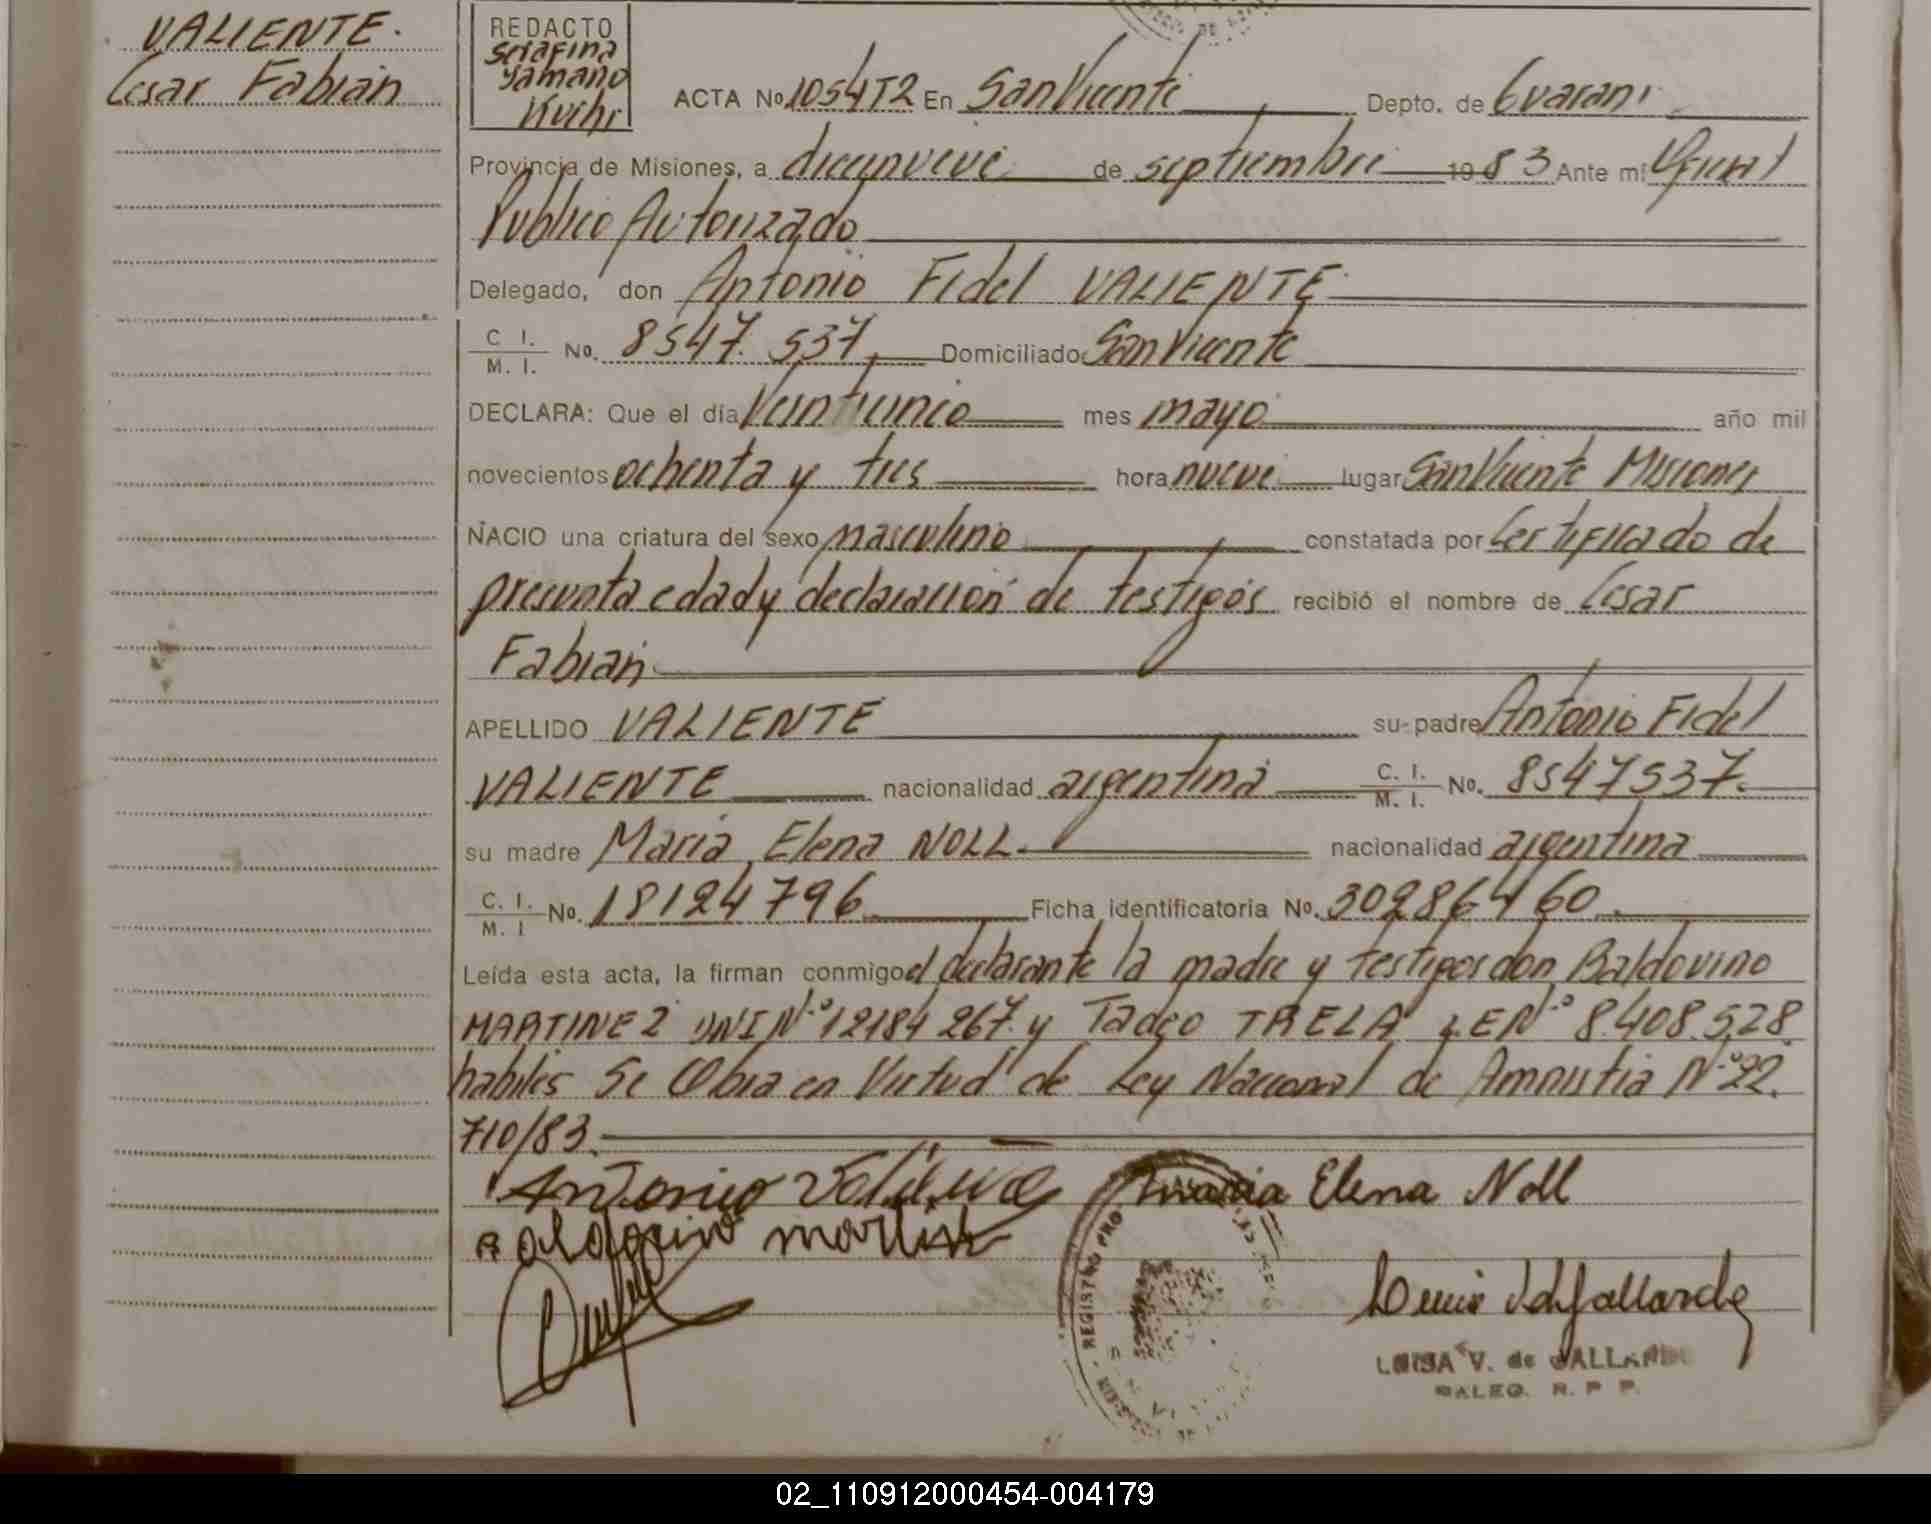 VALIENTE.
Cesar Fabián
REDACTO
Serafina
Yamano
Kuihr
ACTA No 1054T2 En San Vicente Depto. de Guarani
Provincia de Misiones, a diecinueve de septiembre 19 83 Ante mi Oficial
Publico Autorizado
Delegado, don Antonio Fidel VALIENTE
C. I. M. I. No. 8547.537 Domiciliado San Vicente
DECLARA: Que el día Veintiuno mes mayo año mil
novecientos ochenta y tres hora nueve lugar San Vicente Misiones
NACIO una criatura del sexo masculino constatada por Certificado de
presunta edad y declaración de testigos recibió el nombre de Cesar
Fabián
APELLIDO VALIENTE su padre Antonio Fidel
VALIENTE nacionalidad argentina C. I. M. I. No. 8547537.
su madre María Elena NOLL. nacionalidad argentina
C. I. M. I No. 18124796 Ficha identificatoria No. 30286460
Leída esta acta, la firman conmigo el declarante la madre y testigos don Baldovino
MARTINEZ DNI N.º 12184267. y Tadeo TRELA LE N.º 8.408.528.
habiles Se Obra en Virtud de Ley Nacional de Amnistia N.º 22.
710/83.
Antonio Valiente Maria Elena Noll
Baldovino Martinez
REGISTRO PRO
LUISA V. de GALLARDO
R. P. P.
02_110912000454-004179